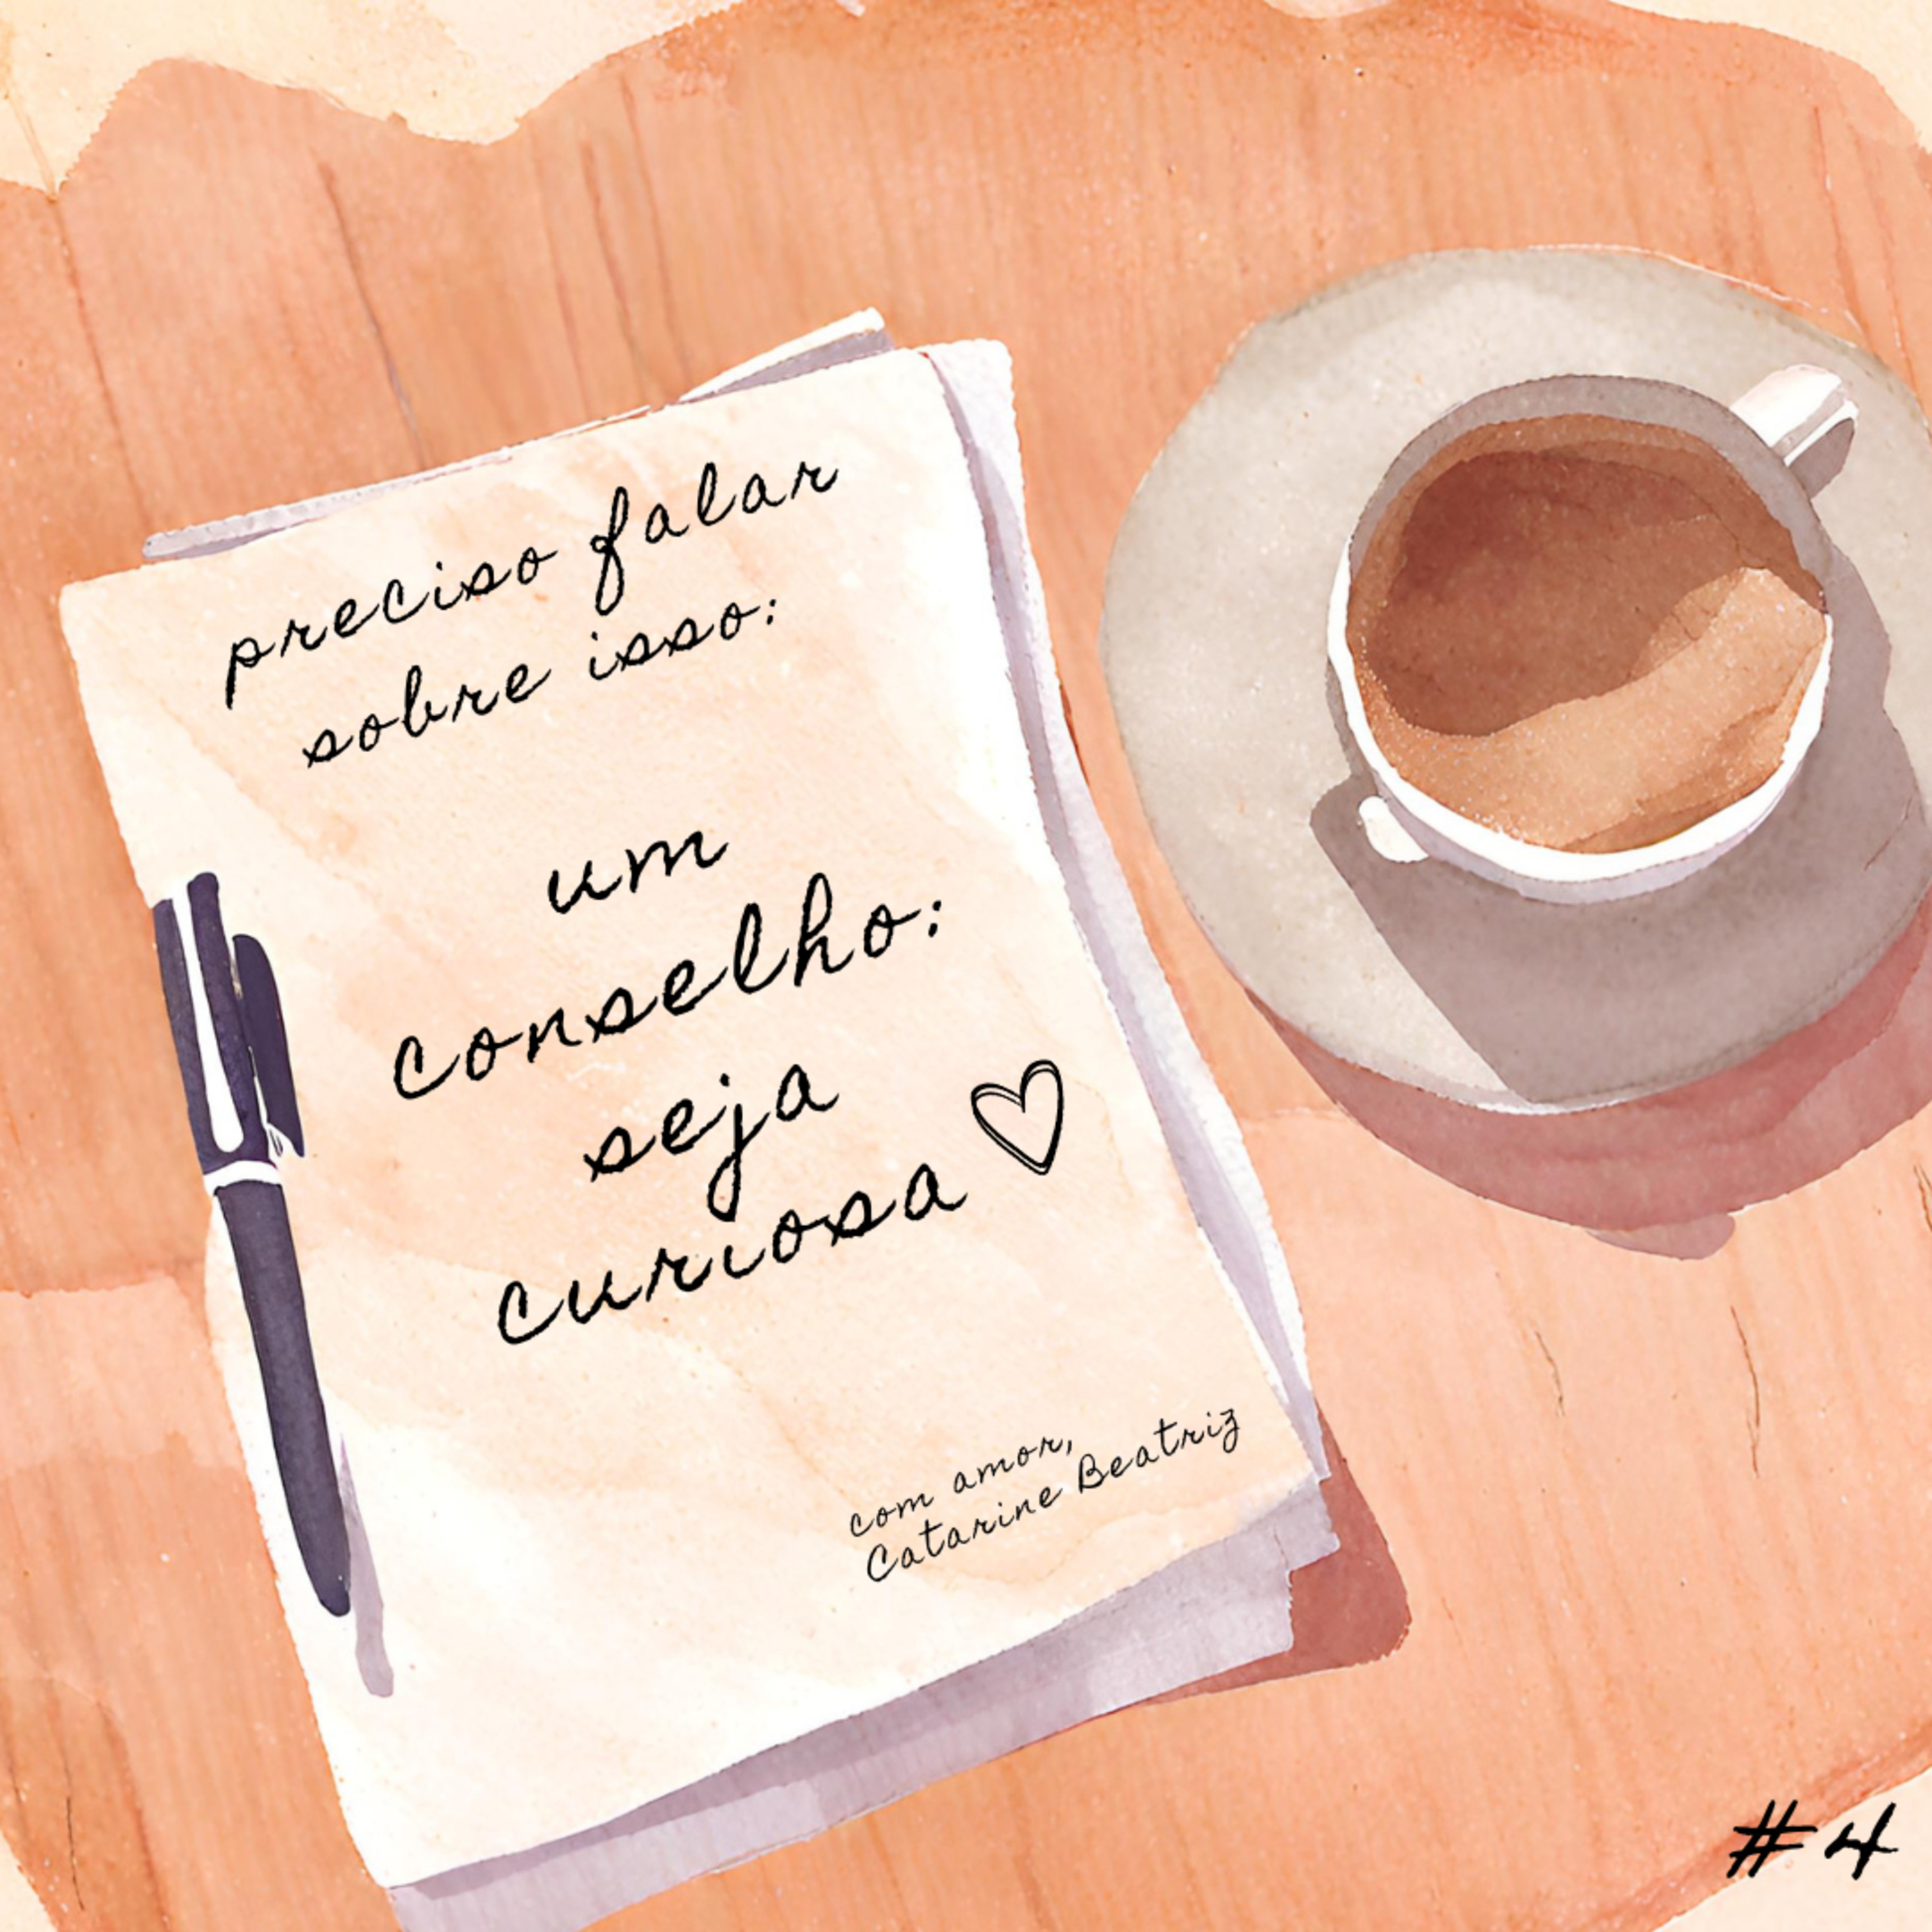 preciso falar
sobre isso:
um
conselho:
seja
curiosa
com amor,
Catarine Beatriz
#4